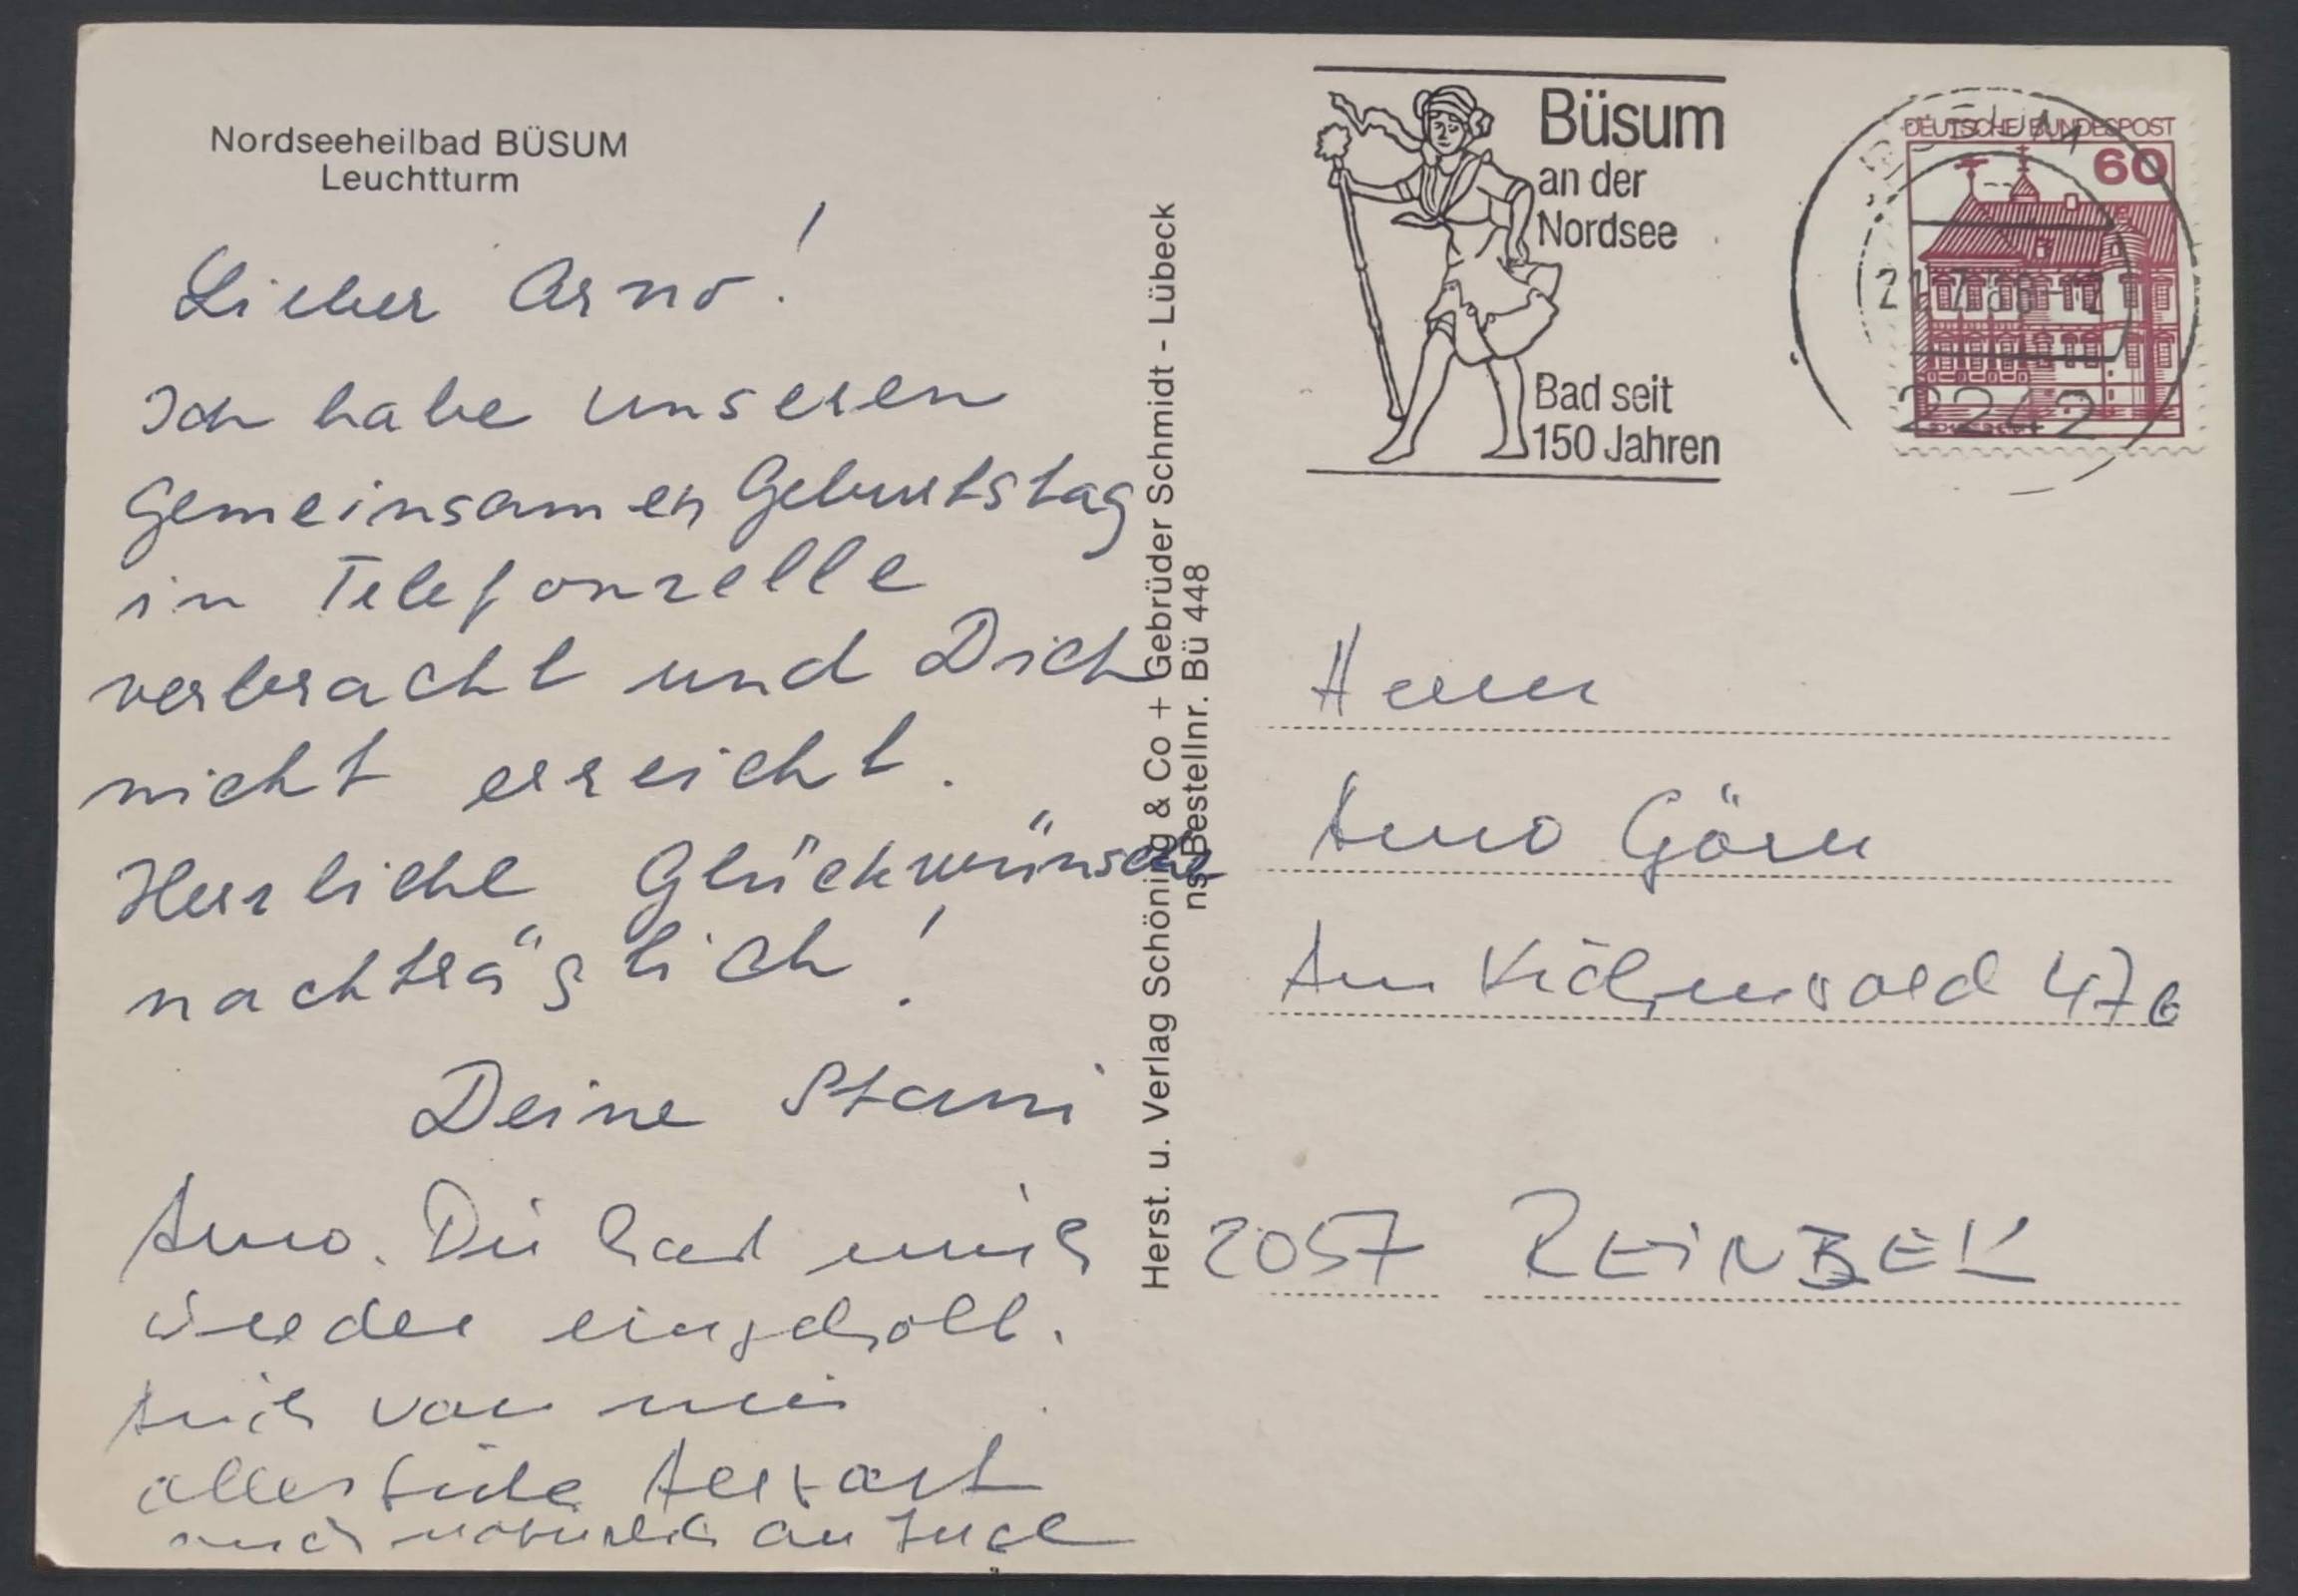 Nordseeheilbad BÜSUM
Leuchtturm
Lieber Arno!
Ich habe unseren
gemeinsamen Geburtstag
in Telefonzelle
verbracht und Dich
nicht erreicht.
Herzliche Glückwünsche
nachträglich!
Deine Stani
Arno. Du hast mich
wieder eingeholt.
Auch von mir
alles Gute
auch natürlich an
Herst. u. Verlag Schöning & Co + Gebrüder Schmidt - Lübeck
nsBestellnr. Bü 448
Büsum
an der
Nordsee
Bad seit
150 Jahren
DEUTSCHE BUNDESPOST
60
BÜSUM
2242
Herrn
Arno Görn
Am 47
2057 REINBEK